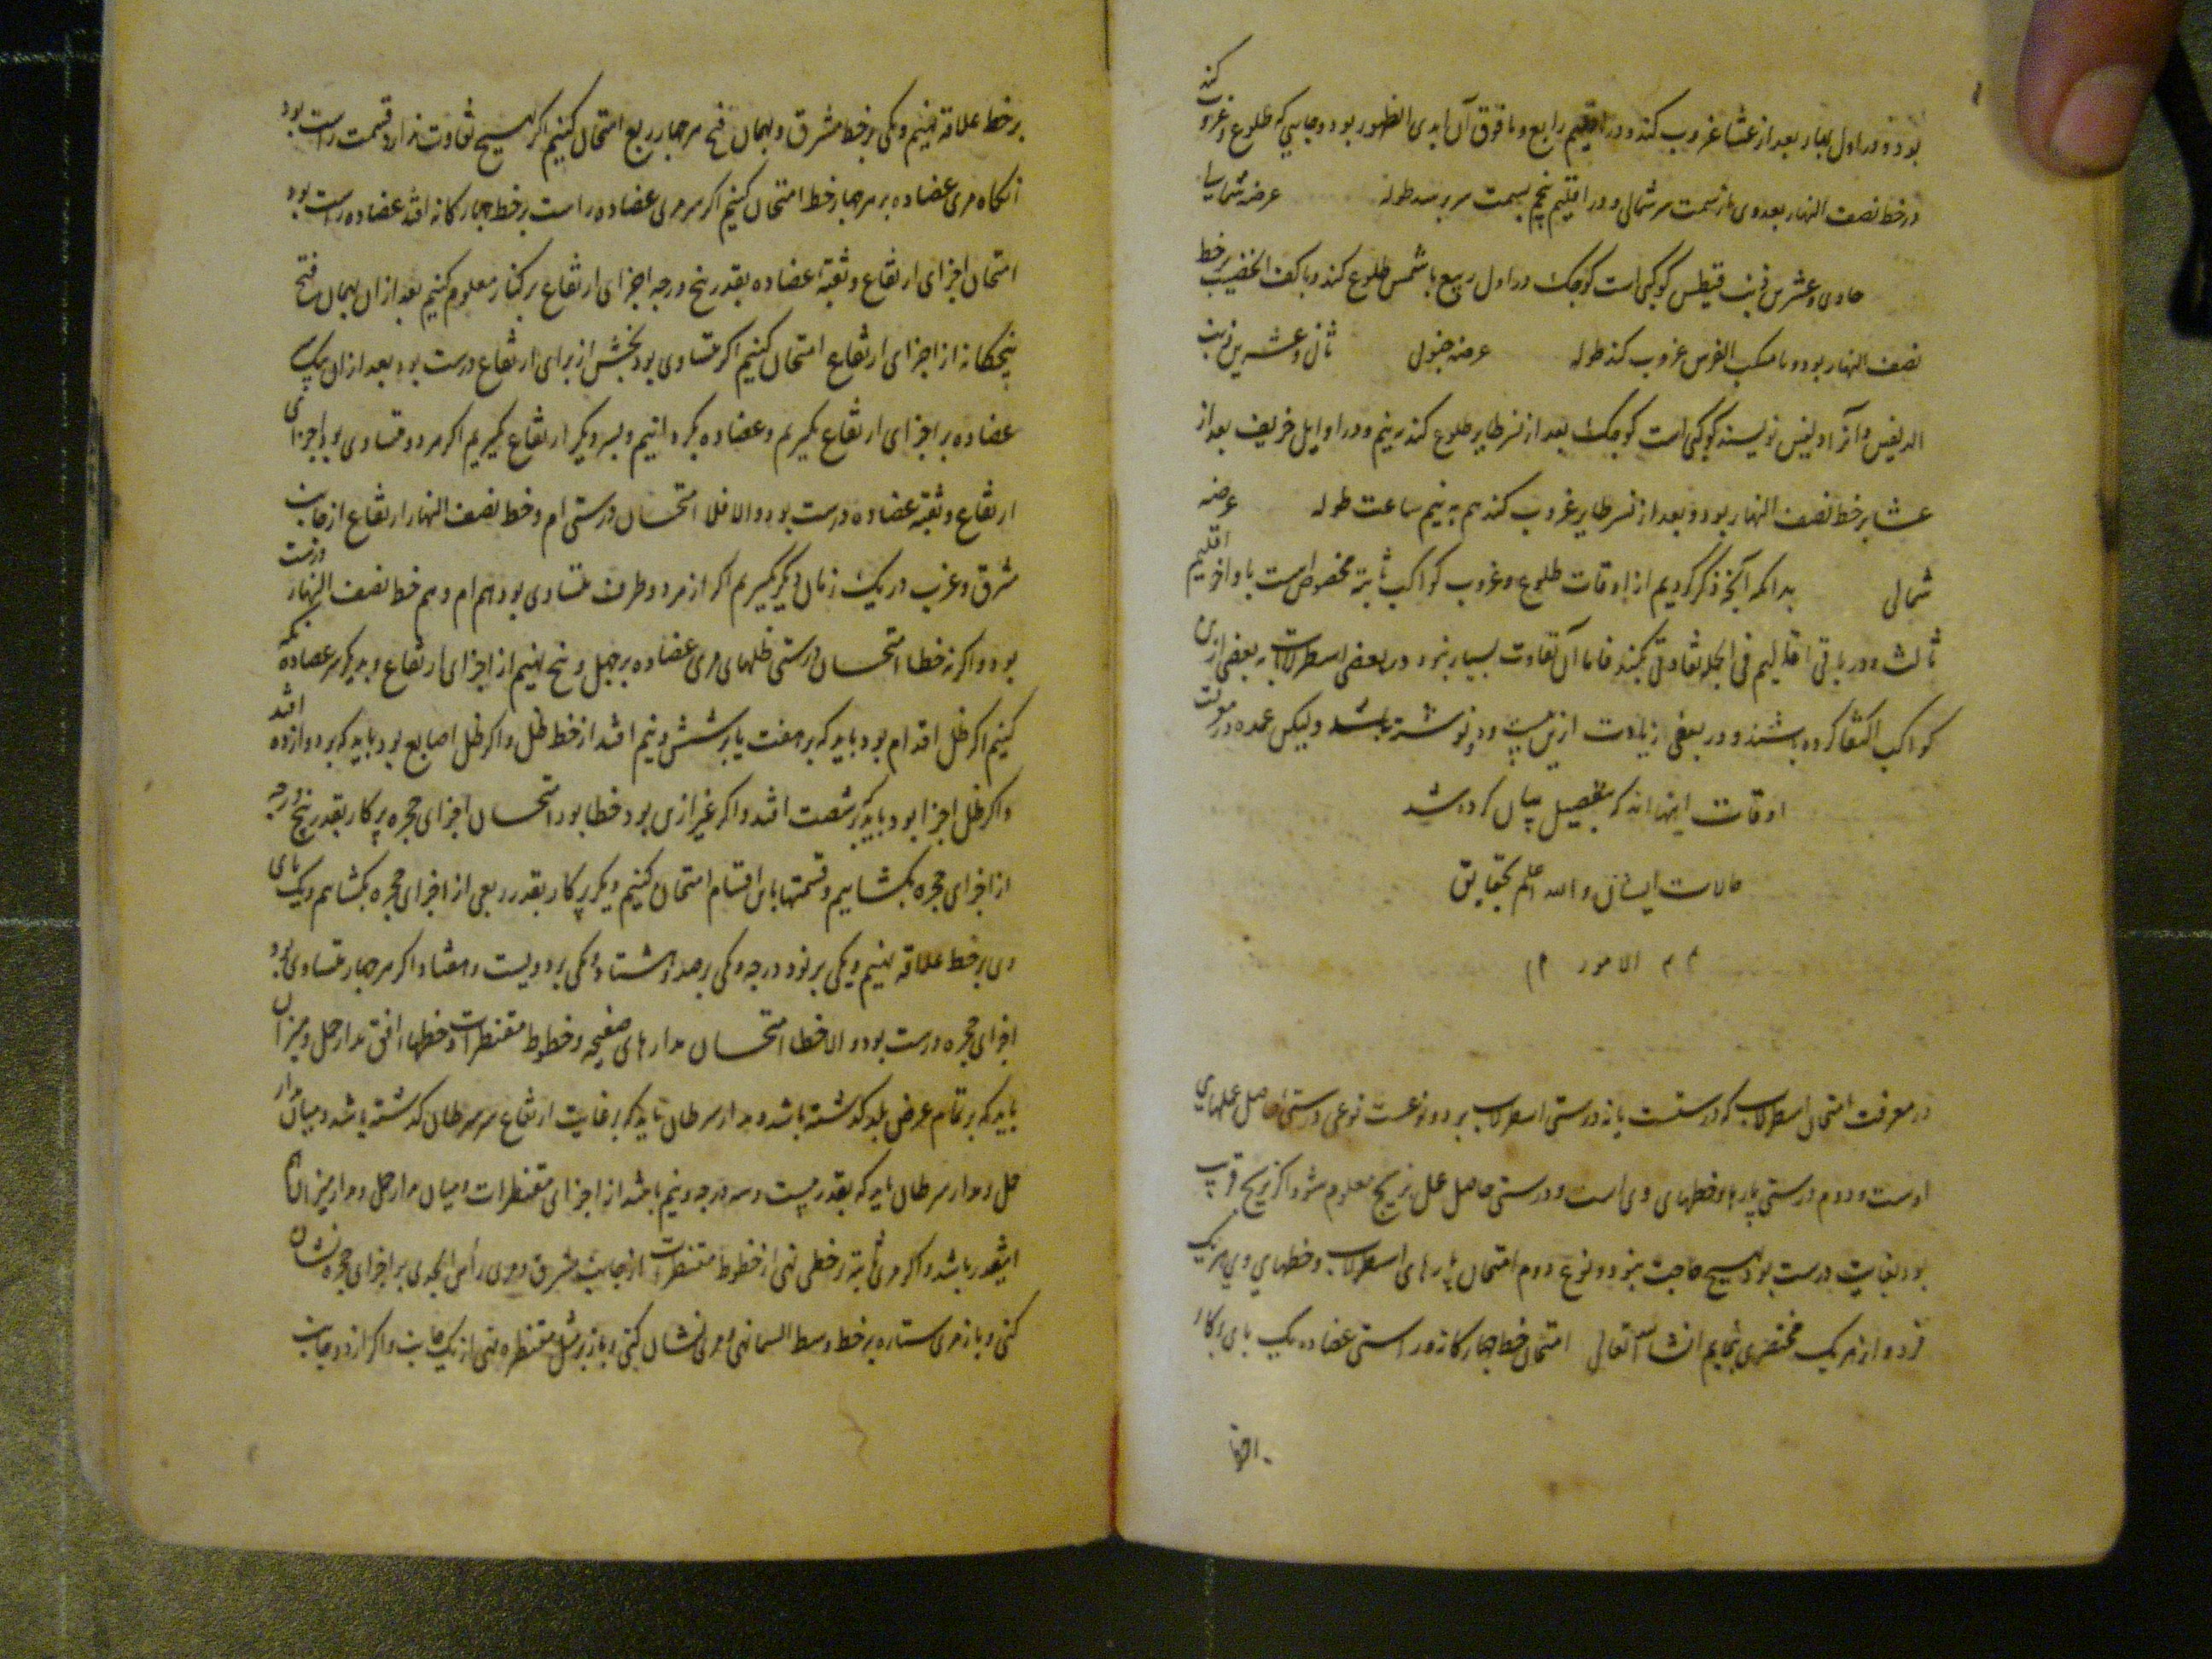 بود و در اول بهار بعد از عشا غروب کند و در اقلیم رابع و ما فوق آن ابدی الظهور بود و جایی که طلوع و غروب کند
در خط نصف النهار بعد وی از سمت سر شمالی و در اقلیم پنجم بسمت سر برسد طوله عرضه شمالیا
حادی و عشرین ذنب قیطس کوکبی است کوچک در اول ربیع با شمس طلوع کند و با کف الخضیب بر خط
نصف النهار بود و با منکب الفرس غروب کند طوله عرضه جنوبی ثانی و عشرین ذنب
الدلفین و آنرا دلفین نویسند کوکبی است کوچک بعد از نسر طایر طلوع کند به نیم و در اوایل خریف بعد از
عشا بر خط نصف النهار بود و بعد از نسر طایر غروب کند هم به نیم ساعت طوله عرضه
شمالی بدانکه آنچه ذکر کردیم از اوقات طلوع و غروب کواکب ثابته مخصوص است باواخر اقلیم
ثالث و در باقی اقالیم فی الجمله تفاوتی بکند فاما آن تفاوت بسیار نبود و در بعضی اسطرلابات به بعضی ازین
کواکب اکتفا کرده باشند و در بعضی زیادت ازین بیست و دو نوشته باشد و لیکن عمده در معرفت
اوقات اینها اند که بتفصیل بیان کرده شد
حالات ایشانی و الله اعلم بحقایق
الامور
در معرفت امتحان اسطرلاب که درستست یا نه درستی اسطرلاب بر دو نوعست نوعی درستی حاصل عملهای
اوست و دوم درستی پارها و خطهای وی است و درستی حاصل عمل بزیج معلوم شود اگر بزیج قریب
بود بغایت درست بود هیچ حاجت نبود و نوع دوم امتحان پارهای اسطرلاب و خطهای وی هر یک
فرد و از هر یک مختصری بنمایم انشاء الله تعالی امتحان خط چهارگانه و راستی عضاده یک پای پرکار
بر خط علاقه نهیم و یکی بر خط مشرق و بهمان فتح هر چهار ربع امتحان کنیم اگر هیچ تفاوت ندارد قسمت راست بود
آنگاه مری عضاده بر هر چهار خط امتحان کنیم اگر هر مری عضاده راست بر خط چهارگانه افتد عضاده راست بود
امتحان اجزای ارتفاع و ثقبة اعضاده بقدر پنج درجه اجزای ارتفاع بر کنار معلوم کنیم بعد از ان بهمان فتح
پنجگانه از اجزای ارتفاع امتحان کنیم اگر متساوی بود بخشش از برای ارتفاع درست بود بعد از ان بیک
عضاده بر اجزای ارتفاع بگیریم و عضاده بگردانیم و بسر دیگر ارتفاع گیریم اگر هر دو متساوی بود اجزای
ارتفاع و ثقبه عضاده درست بود و الا فلا امتحان درستی ام و خط نصف النهار ارتفاع از جانب
شرق و غرب در یک زمان دیگر گیریم اگر از هر دو طرف متساوی بود هم ام و هم خط نصف النهار درست
بود و اگر نه خطا امتحان درستی ظلهای مری عضاده بر چهل و پنج نهیم از اجزای ارتفاع و بدیگر سر عضاده نگه
کنیم اگر ظل اقدام بود باید که بر هفت یا بر شش و نیم افتد از خط ظل و اگر ظل اصابع بود باید که بر دوازده افتد
و اگر ظل اجزا بود باید که بر شصت افتد و اگر غیر ازین بود خطا بود امتحان اجزای حجره پرکار بقدر پنج درجه
از اجزای حجره بگشاییم و قسمتها باین اقسام امتحان کنیم دیگر پرکار بقدر ربعی از اجزای حجره بگشایم و یک پای
وی بر خط علاقه نهیم و یکی بر نود درجه و یکی بر صد و هشتاد و یکی بر دویست و هفتاد اگر هر چهار متساوی بود
اجزای حجره درست بود و الا خطا امتحان مدارهای صفیحه و خطوط مقنطرات و خطهاء افق مدار حمل و میزان
باید که بر تمام عرض بلد گذشته باشد و مدار سرطان باید که بر غایت ارتفاع سر سرطان گذشته باشد و میان مدار
حمل و مدار سرطان باید که بقدر بیست و سه درجه و نیم باشد از اجزای مقنطرات و میان مدار حمل و مدار میزان
اینقدر باشد و اگر مری ثابته بر خطی نهی از خطوط مقنطرات از جانب مشرق و مری رأس الجدی بر اجزای حجره نشان
کنی و باز مری ستاره بر خط وسط السما نهی و مری نشان کنی و باز بر مثل مقنطره نهی از یک جانب و اگر از دو جانب